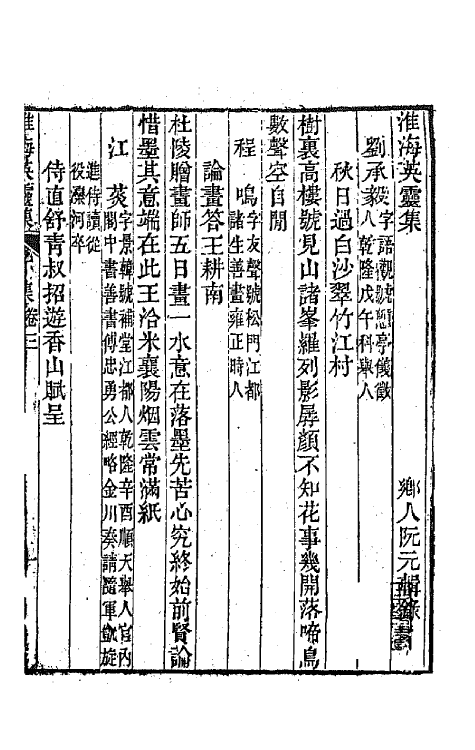 淮海英靈集
鄉人阮元輯錄
劉承
字語觀號亭儀徵
人乾隆戊午科舉人
秋日過白沙翠竹江村
樹裏高樓號見山諸峯羅列影孱顏不知花事幾開落啼鳥
數聲空自閒
程鳴
字友聲號松門江都
諸生善畫雍正時人
論畫答王耕南
杜陵贈畫師五日畫一水意在落墨先苦心究終始前賢論
惜墨其意端在此王洽米襄陽烟雲常滿紙
江炎
字景韓號補堂江都人乾隆辛酉順天舉人官內
閣中書善書傅忠勇公經略金川奏請隨軍凱旋
進侍讀從
役濼河卒
侍直舒青叔招遊香山賦呈
淮海英靈集
集卷三